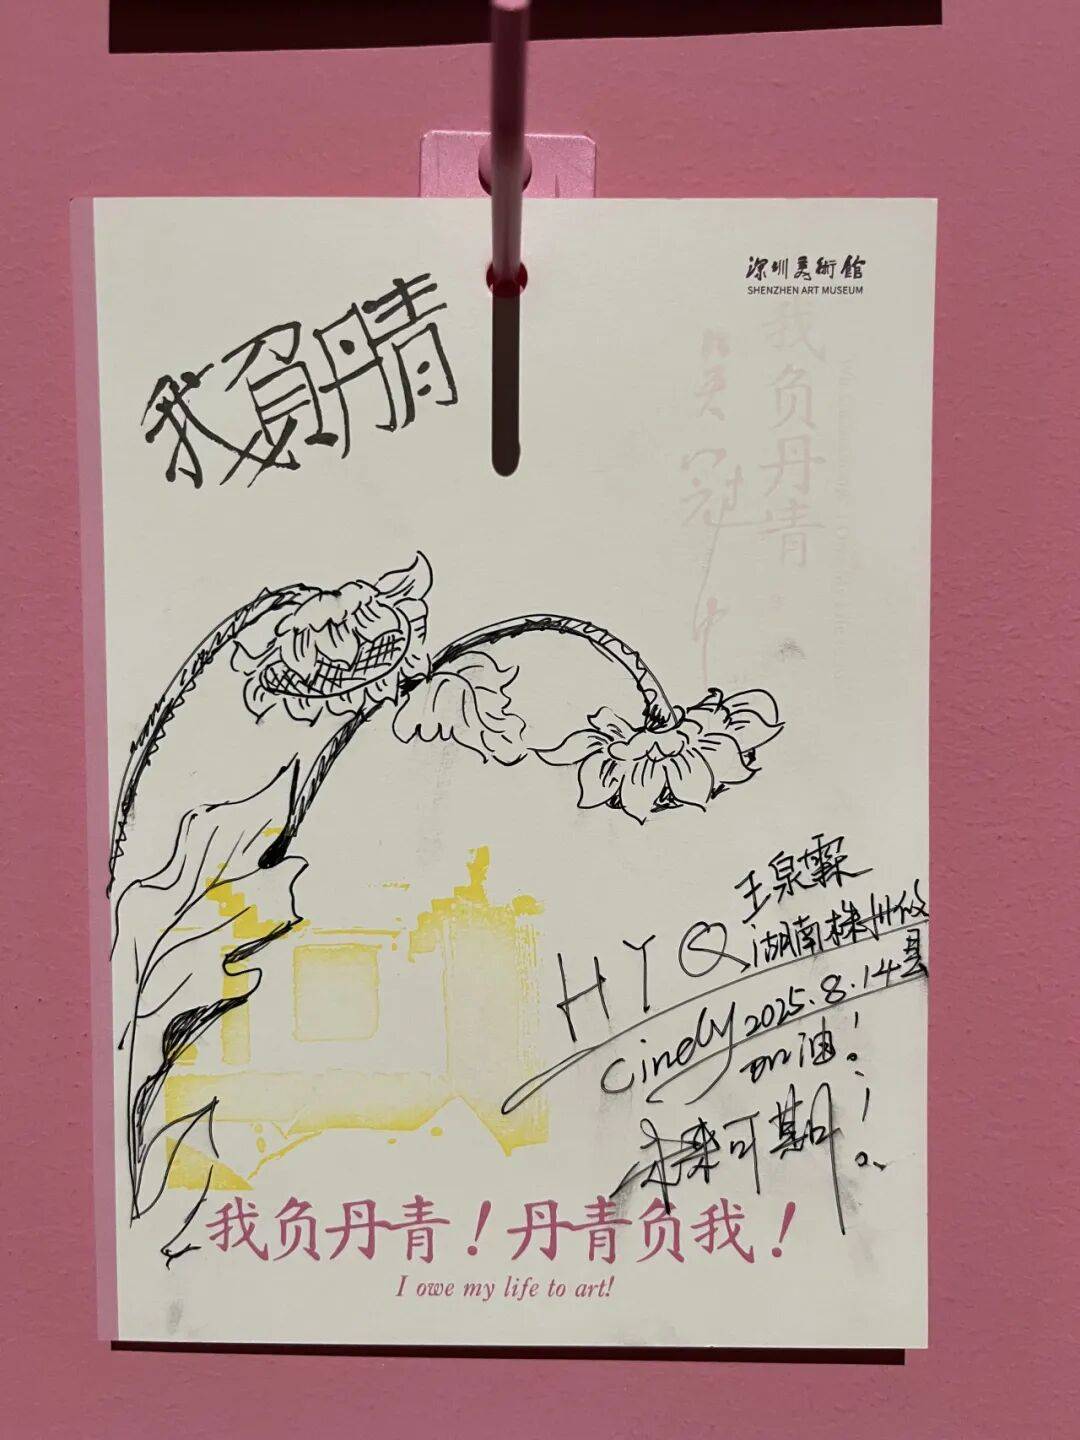 深圳美術館
SHENZHEN ART MUSEUM
我負丹青
我负丹青
吴冠中
王泉霖
HYQ
湖南株州攸县
Cindy 2025.8.14
加油！
可期！
我负丹青！丹青负我！
I owe my life to art!